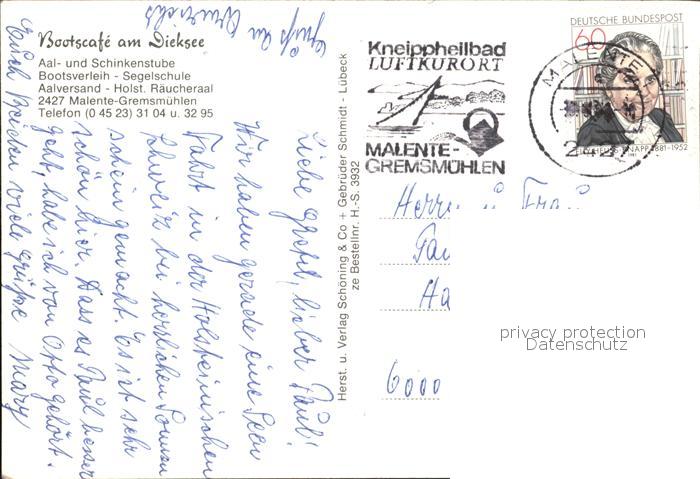 Bootscafé am Dieksee
Aal- und Schinkenstube
Bootsverleih - Segelschule
Aalversand - Holst. Räucheraal
2427 Malente-Gremsmühlen
Telefon (0 45 23) 31 04 u. 32 95
Liebe Gretel, lieber Paul!
Wir haben gerade eine Seen
fahrt in der Holsteinischen
Schweiz bei herrlichem Sonnen
schein gemacht. Es ist sehr
schön hier. Dass es Paul besser
geht, habe ich von Otto gehört.
Euch Beiden viele Grüße Mary
Gruß an
Herst. u. Verlag Schöning & Co + Gebrüder Schmidt - Lübeck
ze Bestellnr. H.-S. 3932
Kneippheilbad
LUFTKURORT
MALENTE-
GREMSMÜHLEN
DEUTSCHE BUNDESPOST
60
MALENTE
2427
ELLY HEUSS-KNAPP 1881-1952
Herrn u Frau
Ha
6000
privacy protection
Datenschutz